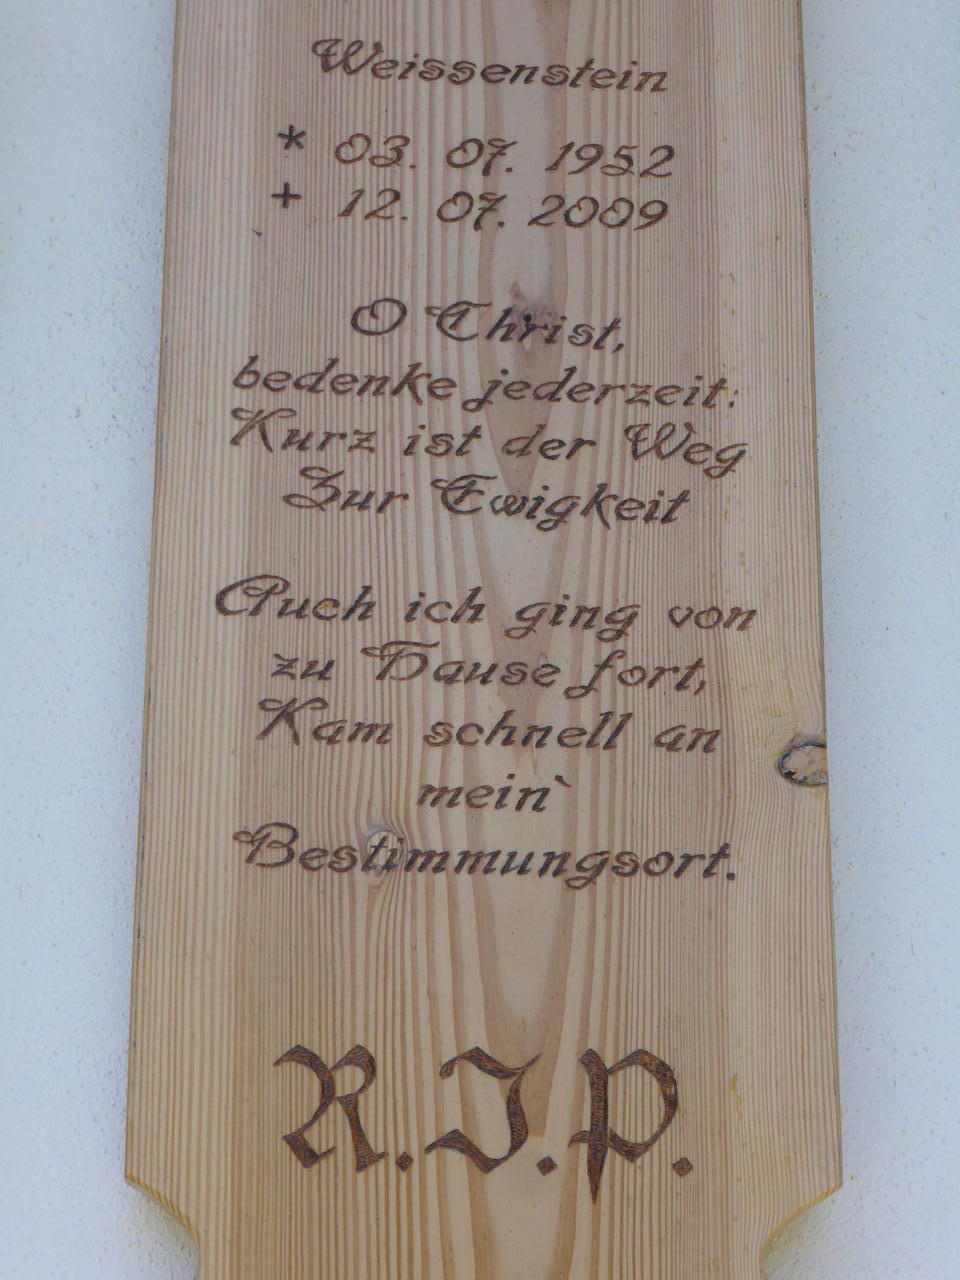 Weissenstein
* 03. 07. 1952
+ 12. 07. 2009
O Christ,
bedenke jederzeit:
Kurz ist der Weg
Zur Ewigkeit
Auch ich ging von
zu Hause fort,
Kam schnell an
mein`
Bestimmungsort.
R.I.P.